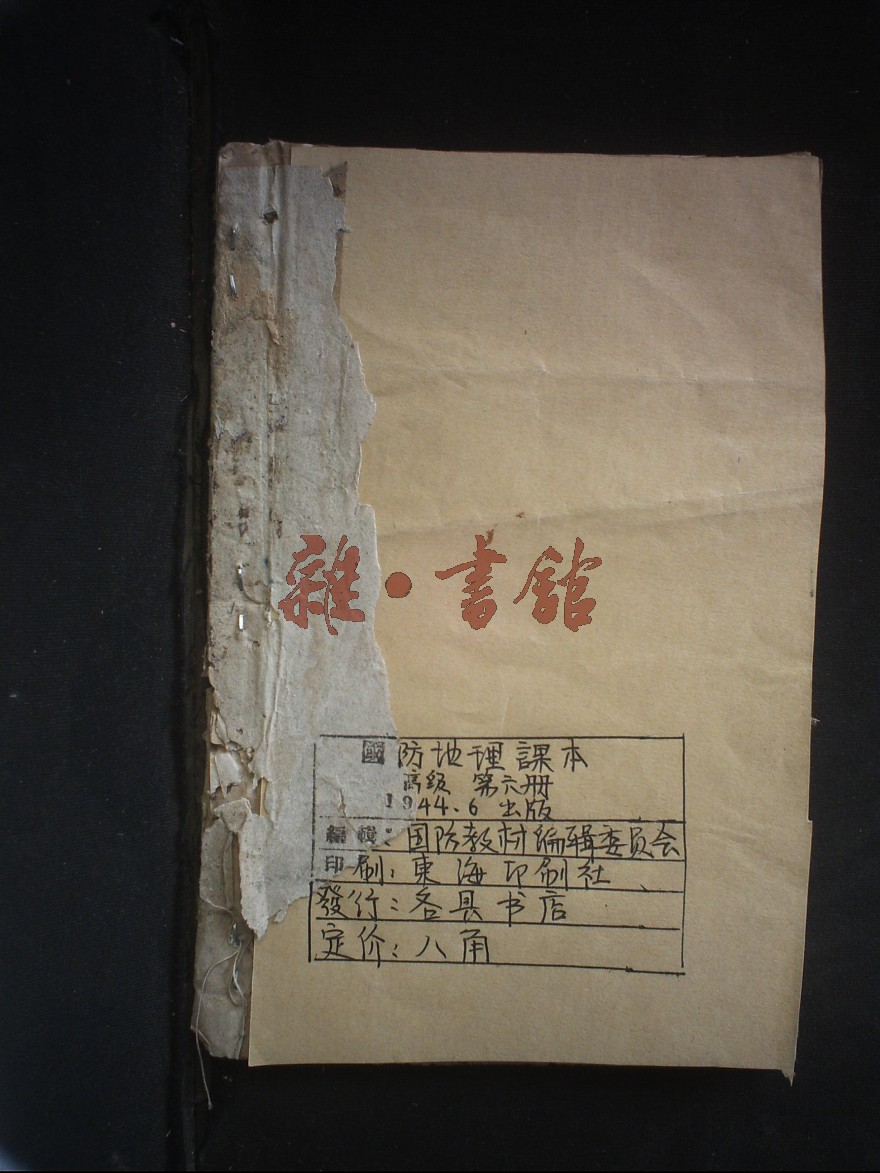 雜·書館
國防地理課本
高级 第六册
1944.6 出版
編輯:国防教材编辑委员会
印刷:東海印刷社
發行:各县书店
定价:八角